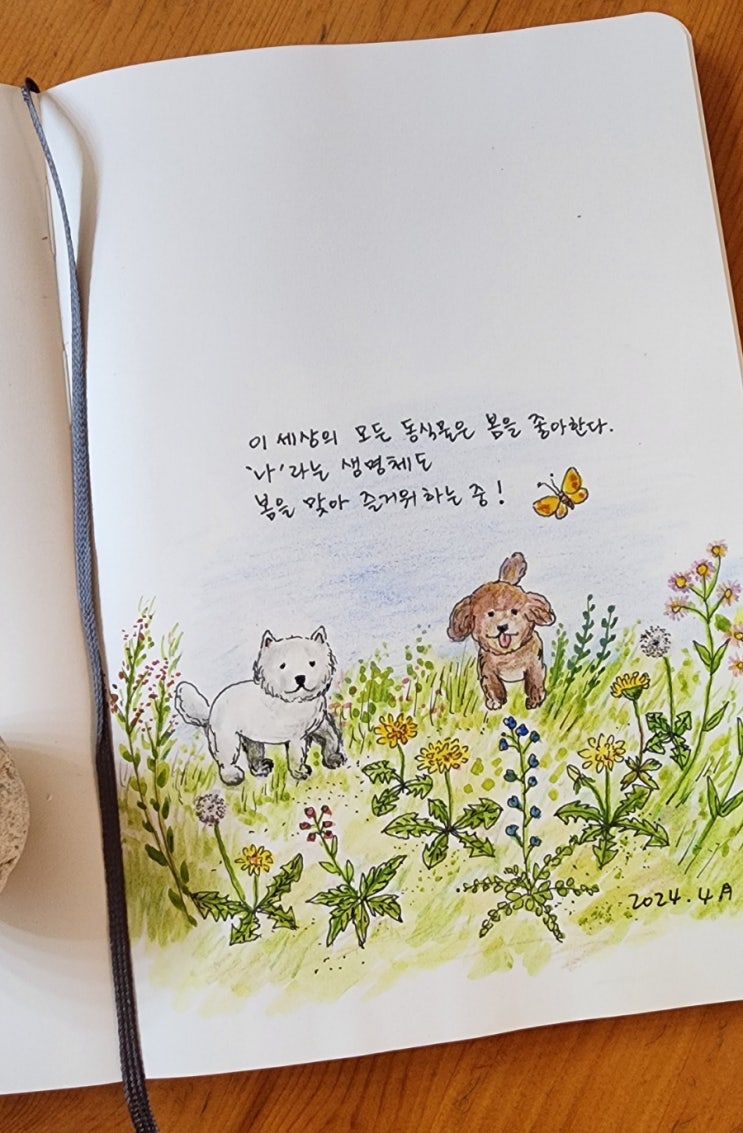 이 세상의 모든 동식물은 봄을 좋아한다.
'나'라는 생명체도
봄을 맞아 즐거워하는 중!
2024.4月